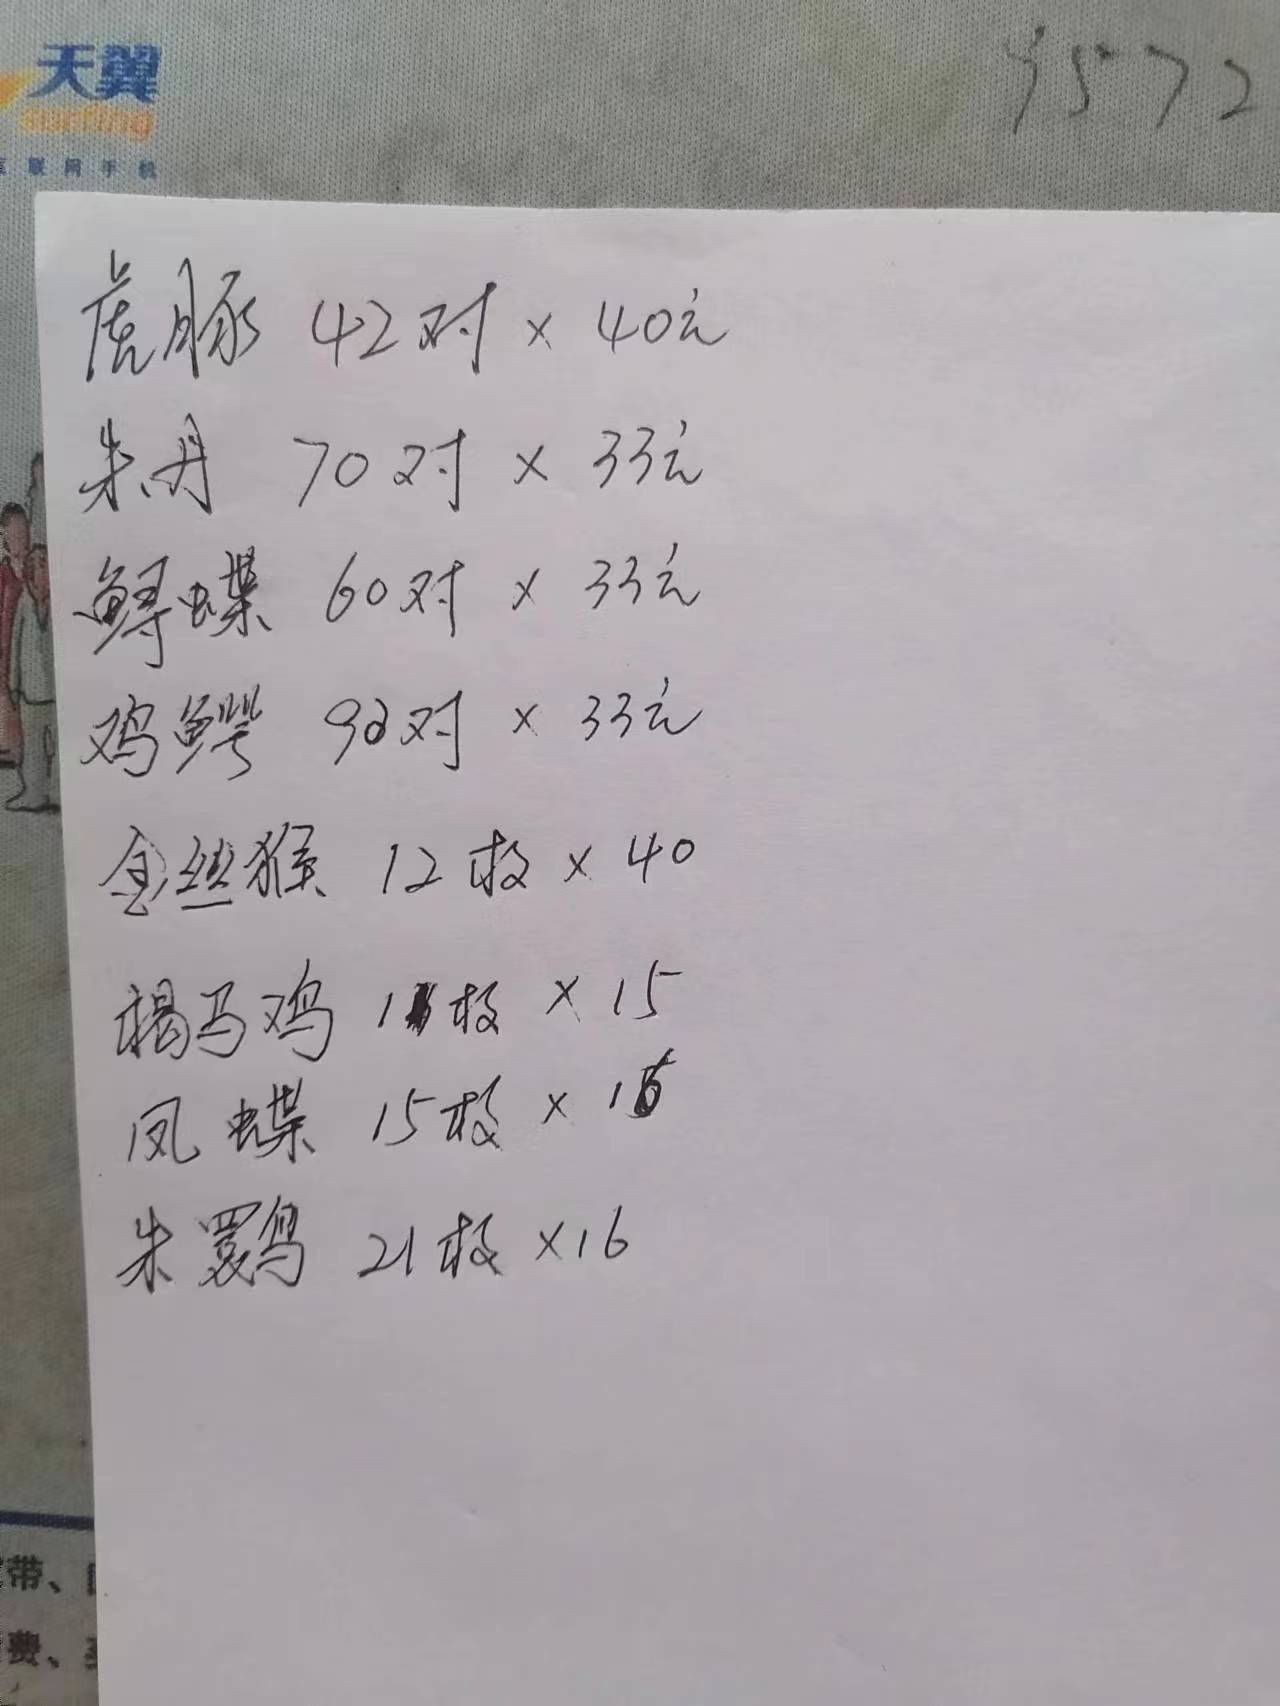 天翼
surfing
互联网手机
9572
虎豚 42对 × 40元
朱丹 70对 × 33元
鲟蝶 60对 × 33元
鸡鳄 90对 × 33元
金丝猴 12枚 × 40
褐马鸡 1枚 × 15
凤蝶 15枚 × 16
朱鹮 21枚 ×16
带、
费、